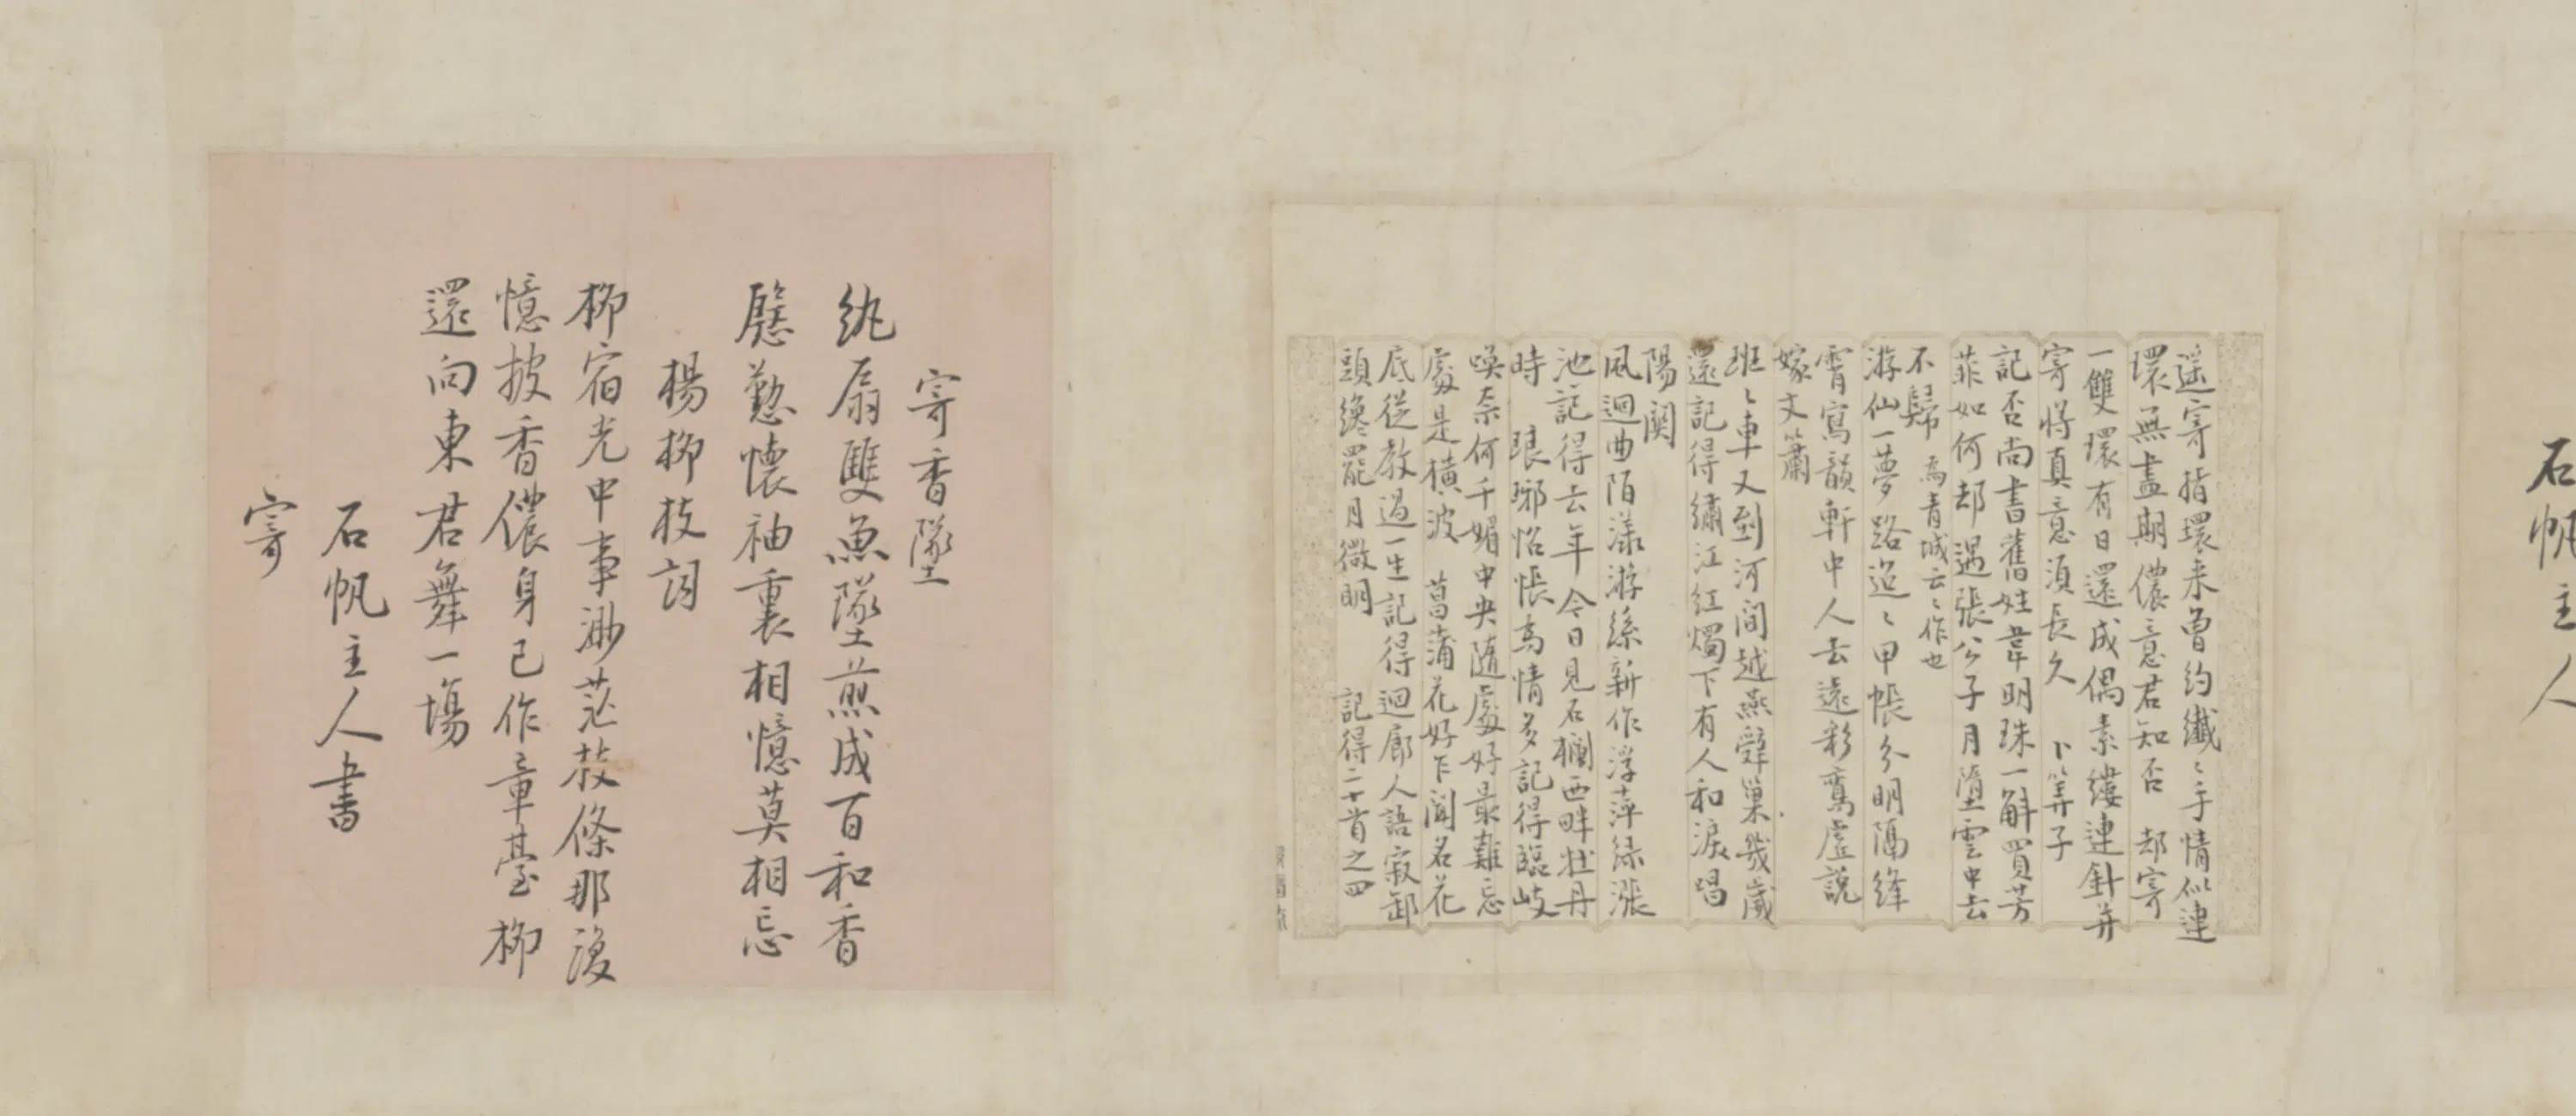 石帆主人
遥寄指環来曾約纖〻手情似連
環無盡期儂意君知否　却寄
一雙環有日還成偶素縷連針并
寄將真意須長久　卜筭子
記否尚書舊姓韋明珠一斛買芳
菲如何却遇張公子月墮雲中去
不歸　為青城云〻作也
游仙一夢路迢〻甲帳分明隔絳
霄寫韻軒中人去遠彩鸞虛說
嫁文簫
班〻車又到河間越燕辭巢幾歲
還記得繡江紅燭下有人和淚唱
陽関
風迴曲陌漾游絲新作浮萍綠漲
池記得去年今日見石欄西畔牡丹
時　琅琊怊悵高情多記得臨岐
喚奈何千媚中央隨處好最難忘
處是橫波　菖蒲花好乍聞名花
底從教過一生記得迴廊人語寂卸
頭纔罷月微明　記得二十首之四
寄香墜
紈扇雙魚墜煎成百和香
慇懃懷袖裏相憶莫相忘
楊柳枝詞
柳宿光中事渺茫枝條那復
憶披香儂身已作章臺柳
還向東君舞一塲
石帆主人書
寄